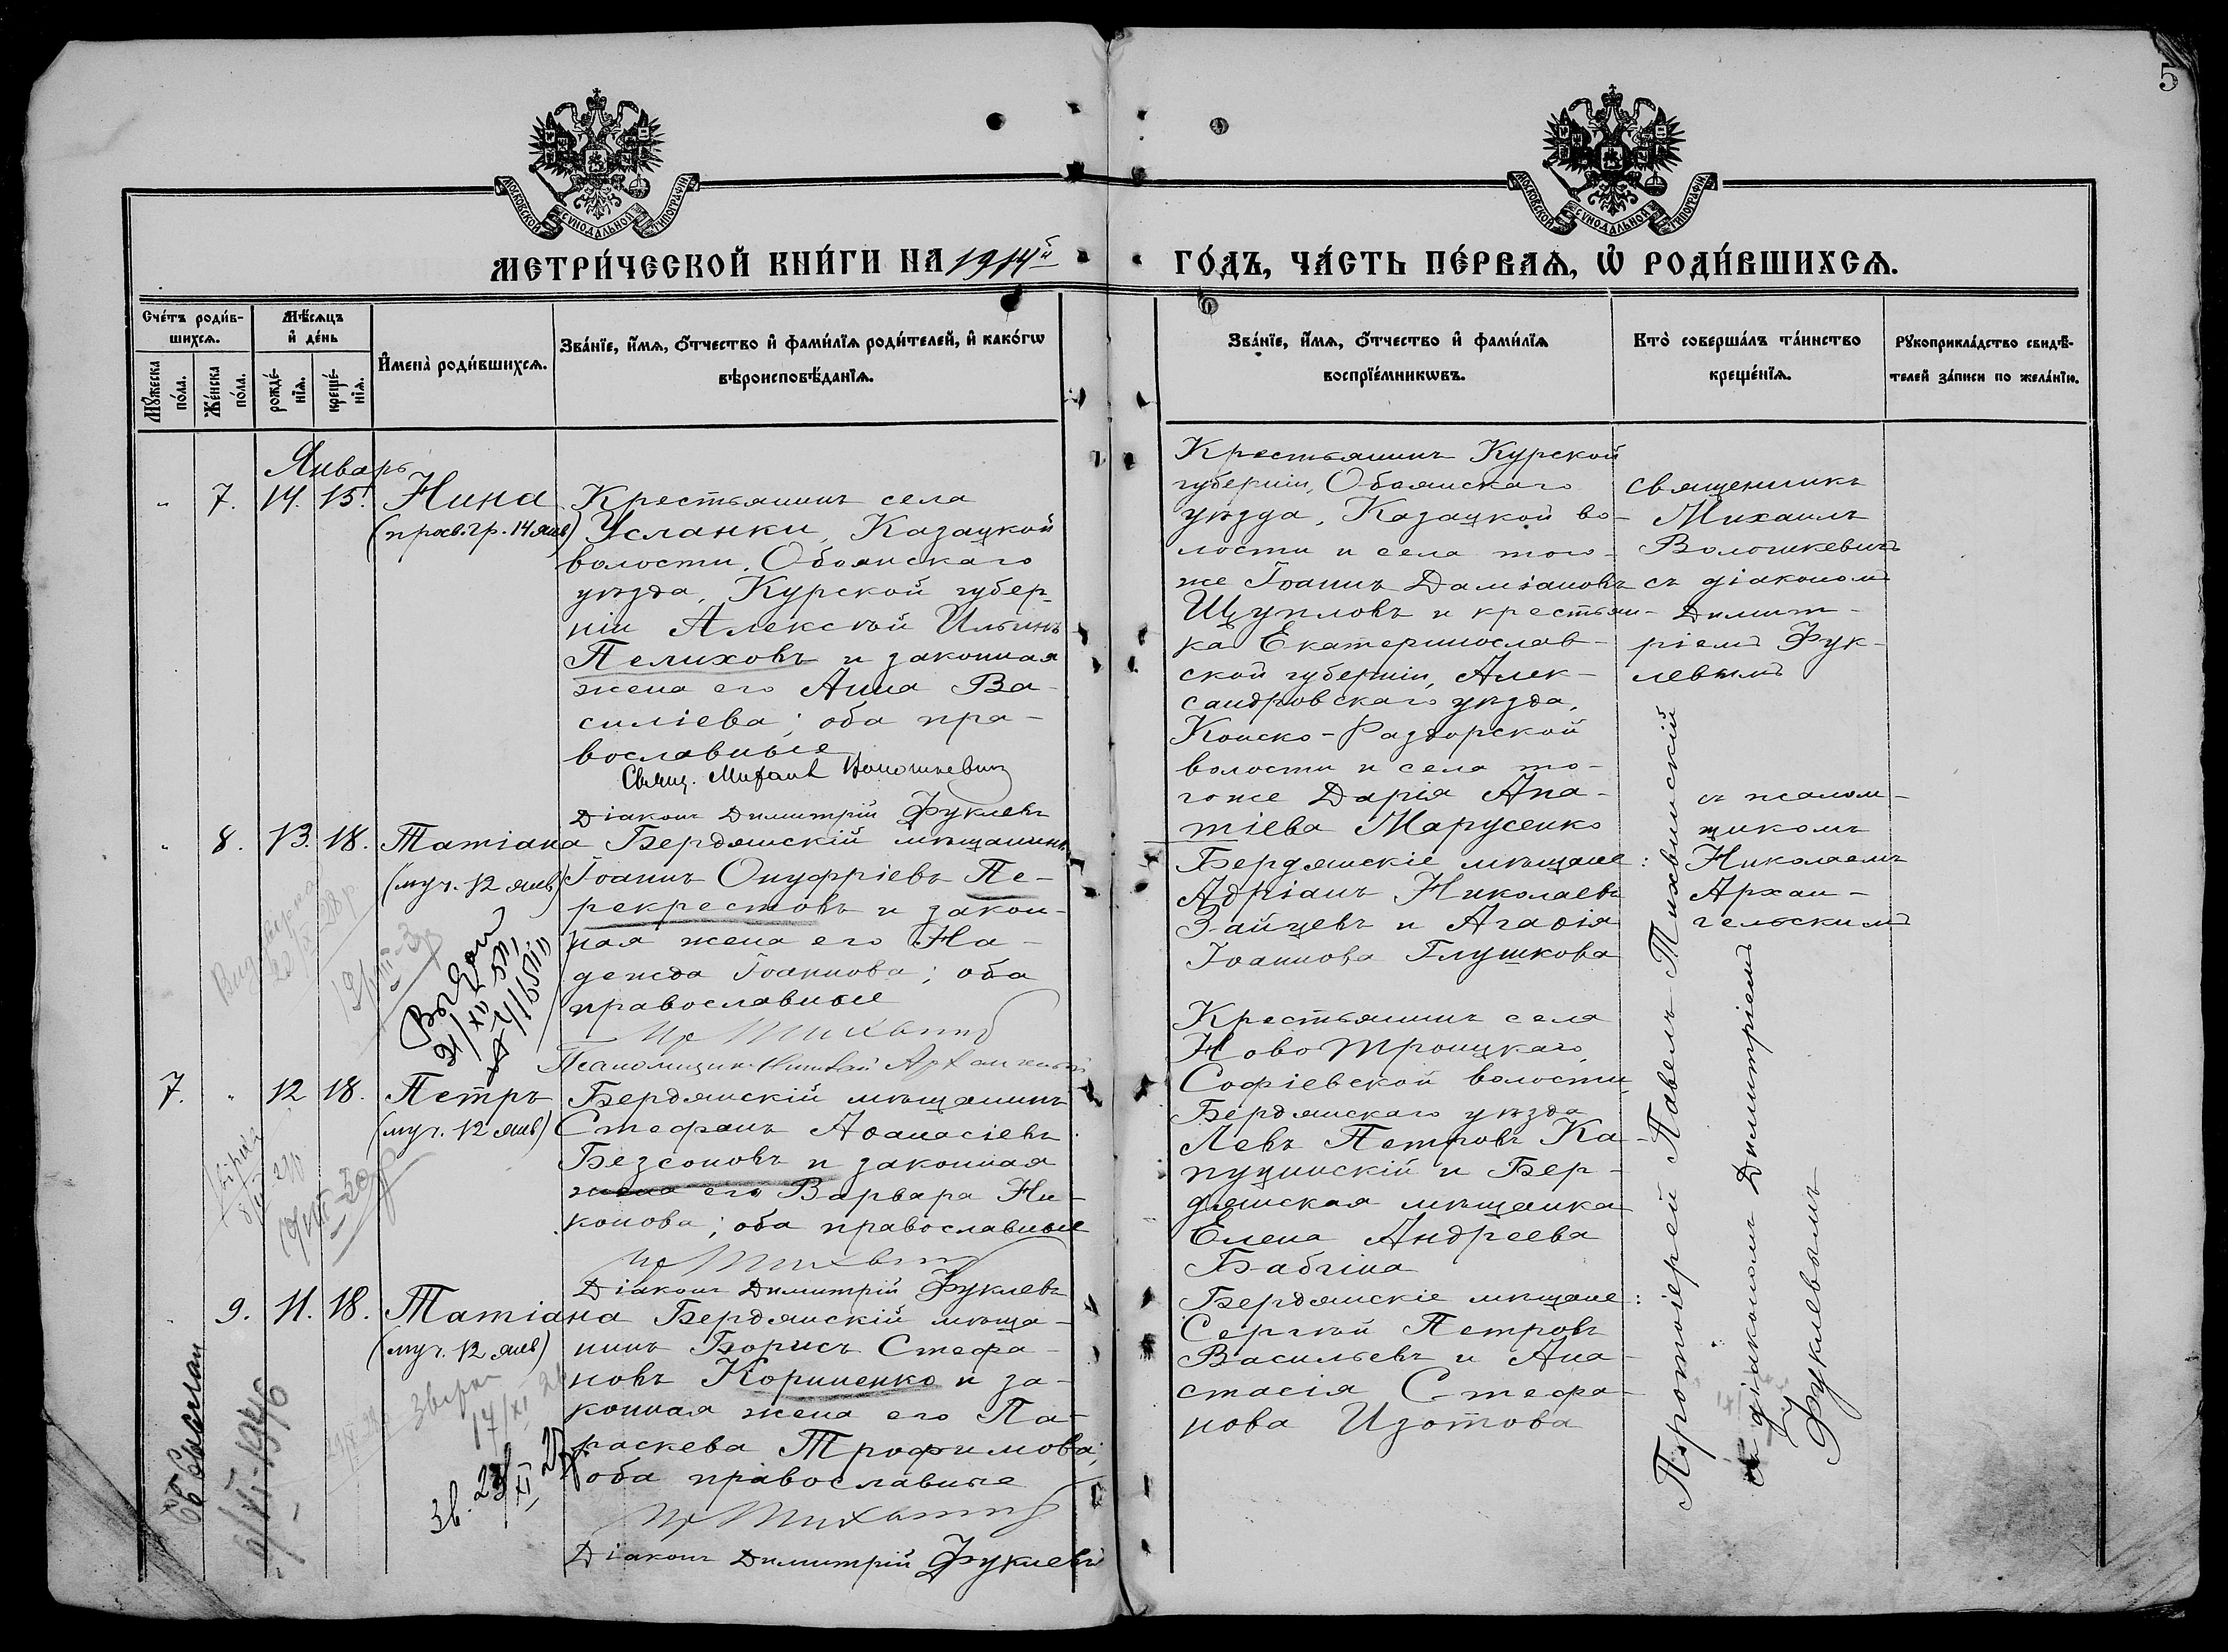 5
МОСКОВСКОЙ СѴНОДАЛЬНОЙ ТИПОГРАФІИ
МОСКОВСКОЙ СѴНОДАЛЬНОЙ ТИПОГРАФІИ
МЕТРИ́ЧЕСКОЙ КНИ́ГИ НА 1914й
ГО́ДЪ, ЧА́СТЬ ПЕ́РВАѦ, Ѡ҆ РОДИ́ВШИХСѦ.
Сче́тъ роди́в-
шихсѧ.
Мꙋжеска
по́ла.
Же́нска
по́ла.
Мѣ́сѧцъ
и҆ де́нь
рожде́-
нїѧ.
креще́-
нїѧ.
И҆мена̀ роди́вшихсѧ.
Зва́нїе, и҆́мѧ, ѻ҆́тчество и҆ фами́лїѧ роди́телей, и҆ како́гѡ
вѣроисповѣ́данїѧ.
Зва́нїе, и҆́мѧ, ѻ҆́тчество и҆ фами́лїѧ
воспрїе́мникѡвъ.
Кто̀ соверша́лъ та́инство
креще́нїѧ.
Рꙋкоприкла́дство свидѣ́-
телей за́писи по жела́нїю.
Январь
" 7. 14. 15. Нина
(просв. Гр. 14 янв)
Крестьянинъ села
Усланки, Казацкой
волости, Обоянскаго
уѣзда, Курской губер-
ніи Алексѣй Ильинъ
Пелиховъ и законная
жена его Анна Ва-
силіева; оба пра-
вославные
Свящ. Михаилъ Волошкевичъ
Діаконъ Димитрій Фуклевъ
Крестьянинъ Курской
губерніи, Обоянскаго
уѣзда, Казацкой во-
лости и села того-
же Іоаннъ Даміановъ
Щупловъ и крестьян-
ка Екатеринослав-
ской губерніи, Алек-
сандровскаго уѣзда,
Конско-Раздорской
волости и села то-
гоже Дарія Ипа-
тіева Марусенко
Священникъ
Михаилъ
Волошкевичъ
съ діакономъ
Димит-
ріемъ Фук-
левымъ
" 8. 13. 18. Татіана
(муч. 12 янв)
Бердянскій мѣщанинъ
Іоаннъ Онуфріевъ Пе-
рекрестовъ и закон-
ная жена его На-
дежда Іоаннова; оба
православные
Пр Тихвинс
Псаломщик Николай Архангельскій
Бердянскіе мѣщане:
Адріанъ Николаевъ
Зайцевъ и Агаѳія
Іоаннова Глушкова
съ псалом-
щикомъ
Николаемъ
Архан-
гельскимъ
Выдан
21/XII 51г
7. " 12 18. Петръ
(муч. 12 янв)
Бердянскій мѣщанинъ
Стефанъ Аѳанасіевъ
Безсоновъ и законная
жена его Варвара Ни-
конова; оба православные
Пр Тихвинс
Діаконъ Димитрій Фуклевъ
Крестьянинъ села
НовоТроицкаго,
Софіевской волости,
Бердянскаго уѣзда
Левъ Петровъ Ка-
пущинскій и Бер-
дянская мѣщанка
Елена Андреева
Бабгина
" 9. 11. 18. Татіана
(муч. 12 янв)
Бердянскій мѣща-
нинъ Борисъ Стефа-
новъ Корниенко и за-
конная жена его Па-
раскева Трофимова;
оба православные
Пр Тихвинс
Діаконъ Димитрій Фуклевъ
Бердянскіе мѣщане:
Сергѣй Петровъ
Васильевъ и Ана-
стасія Стефа-
нова Изотова
Протоіерей Павелъ Тихвинскій
съ діакономъ Димитріемъ
Фуклевымъ
Зверен
17/XI 26
зв. 23/XI 27г